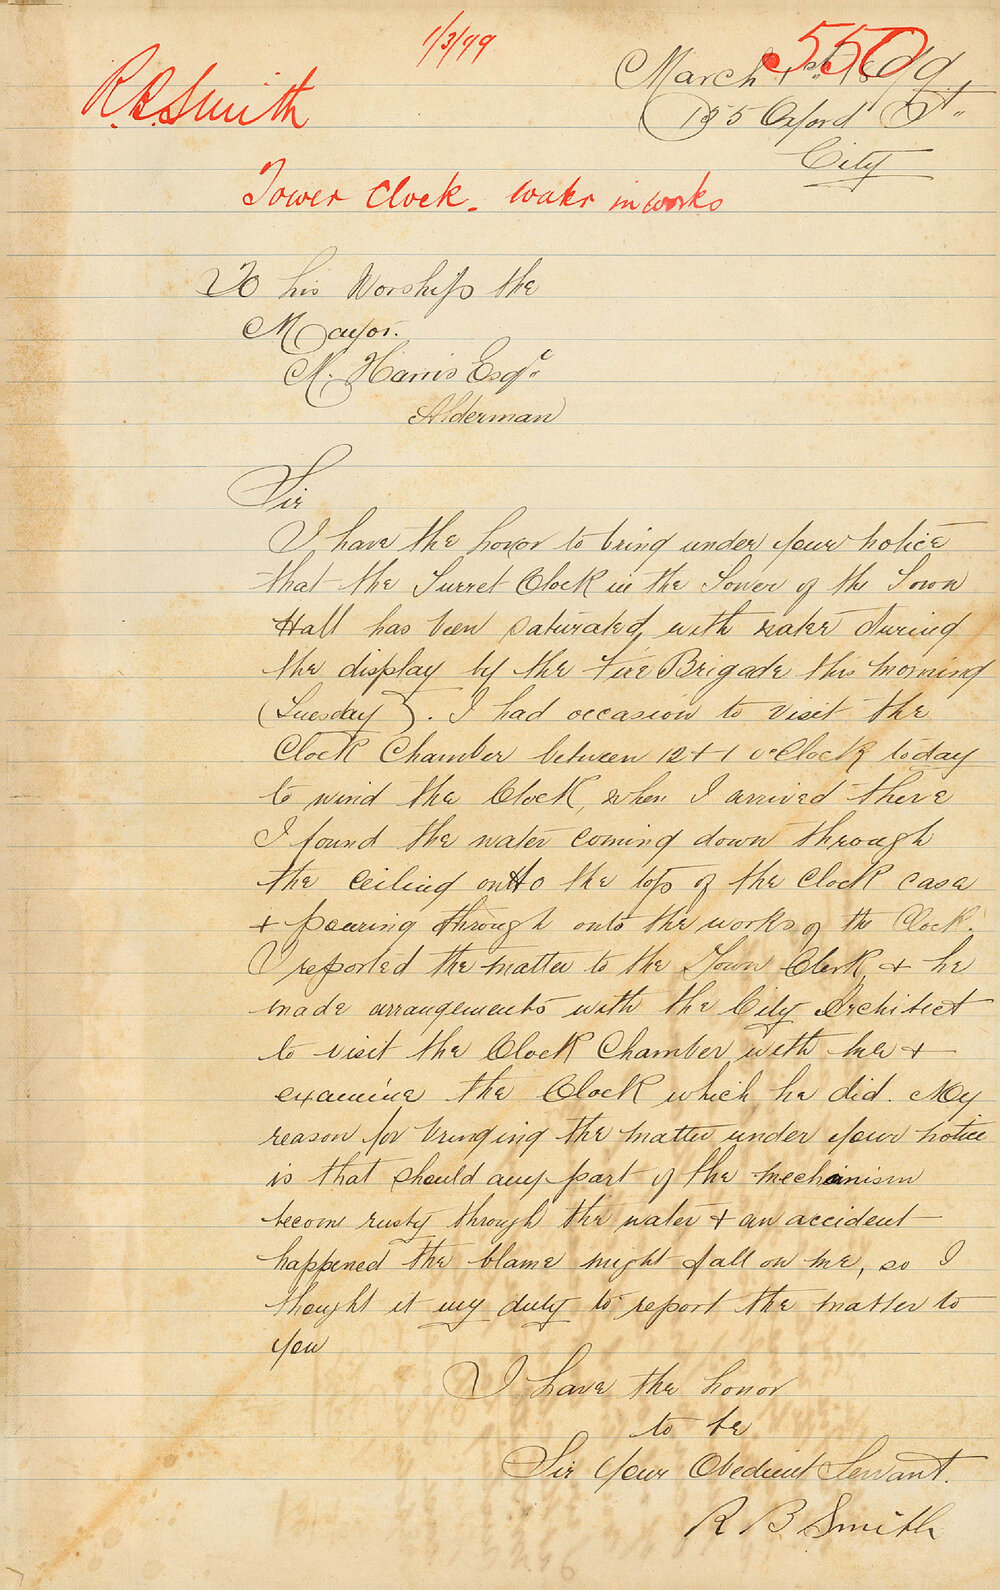 1/3/99
550
R.B. Smith
March 1st 1899
195 Oxford St.
City
Tower Clock - water in works
To his Worship the
Mayor.
M. Harris Esqre
Alderman
Sir
I have the honor to bring under your notice
that the Turret Clock in the Tower of the Town
Hall has been saturated, with water during
the display by the Fire Brigade this morning
(Tuesday). I had occasion to visit the
Clock Chamber between 12 + 1 o'Clock today
to wind the Clock, when I arrived there
I found the water coming down through
the ceiling onto the top of the Clock case
+ pouring through onto the works of the Clock.
I reported the matter to the Town Clerk, + he
made arrangements with the City Architect
to visit the Clock Chamber with me +
examine the Clock which he did. My
reason for bringing the matter under your notice
is that should any part of the mechanism
become rusty through the water + an accident
happened the blame might fall on me, so I
thought it my duty to report the matter to
you
I have the honor
to be
Sir Your Obedient Servant.
R B Smith